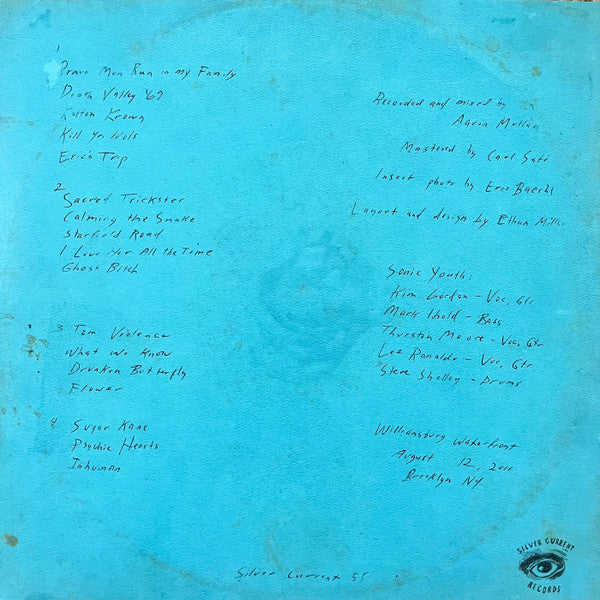 1
Brave Men Run in my Family
Death Valley '69
Kotton Krown
Kill Yr Idols
Eric's Trip
2
Sacred Trickster
Calming the Snake
Starfield Road
I Love Her All the Time
Ghost Bitch
3. Tom Violence
What We Know
Drunken Butterfly
Flower
4. Sugar Kane
Psychic Hearts
Inhuman
Recorded and mixed by
Aaron Mullan
Mastered by Carl Saff
Insert photo by Eric Baecht
Layout and design by Ethan Miller
Sonic Youth:
Kim Gordon - Voc, Gtr
Mark Ibold - Bass
Thurston Moore - Voc, Gtr
Lee Ranaldo - Voc, Gtr
Steve Shelley - Drums
Williamsburg Waterfront
August 12, 2011
Brooklyn NY
Silver Current 55
SILVER CURRENT
RECORDS